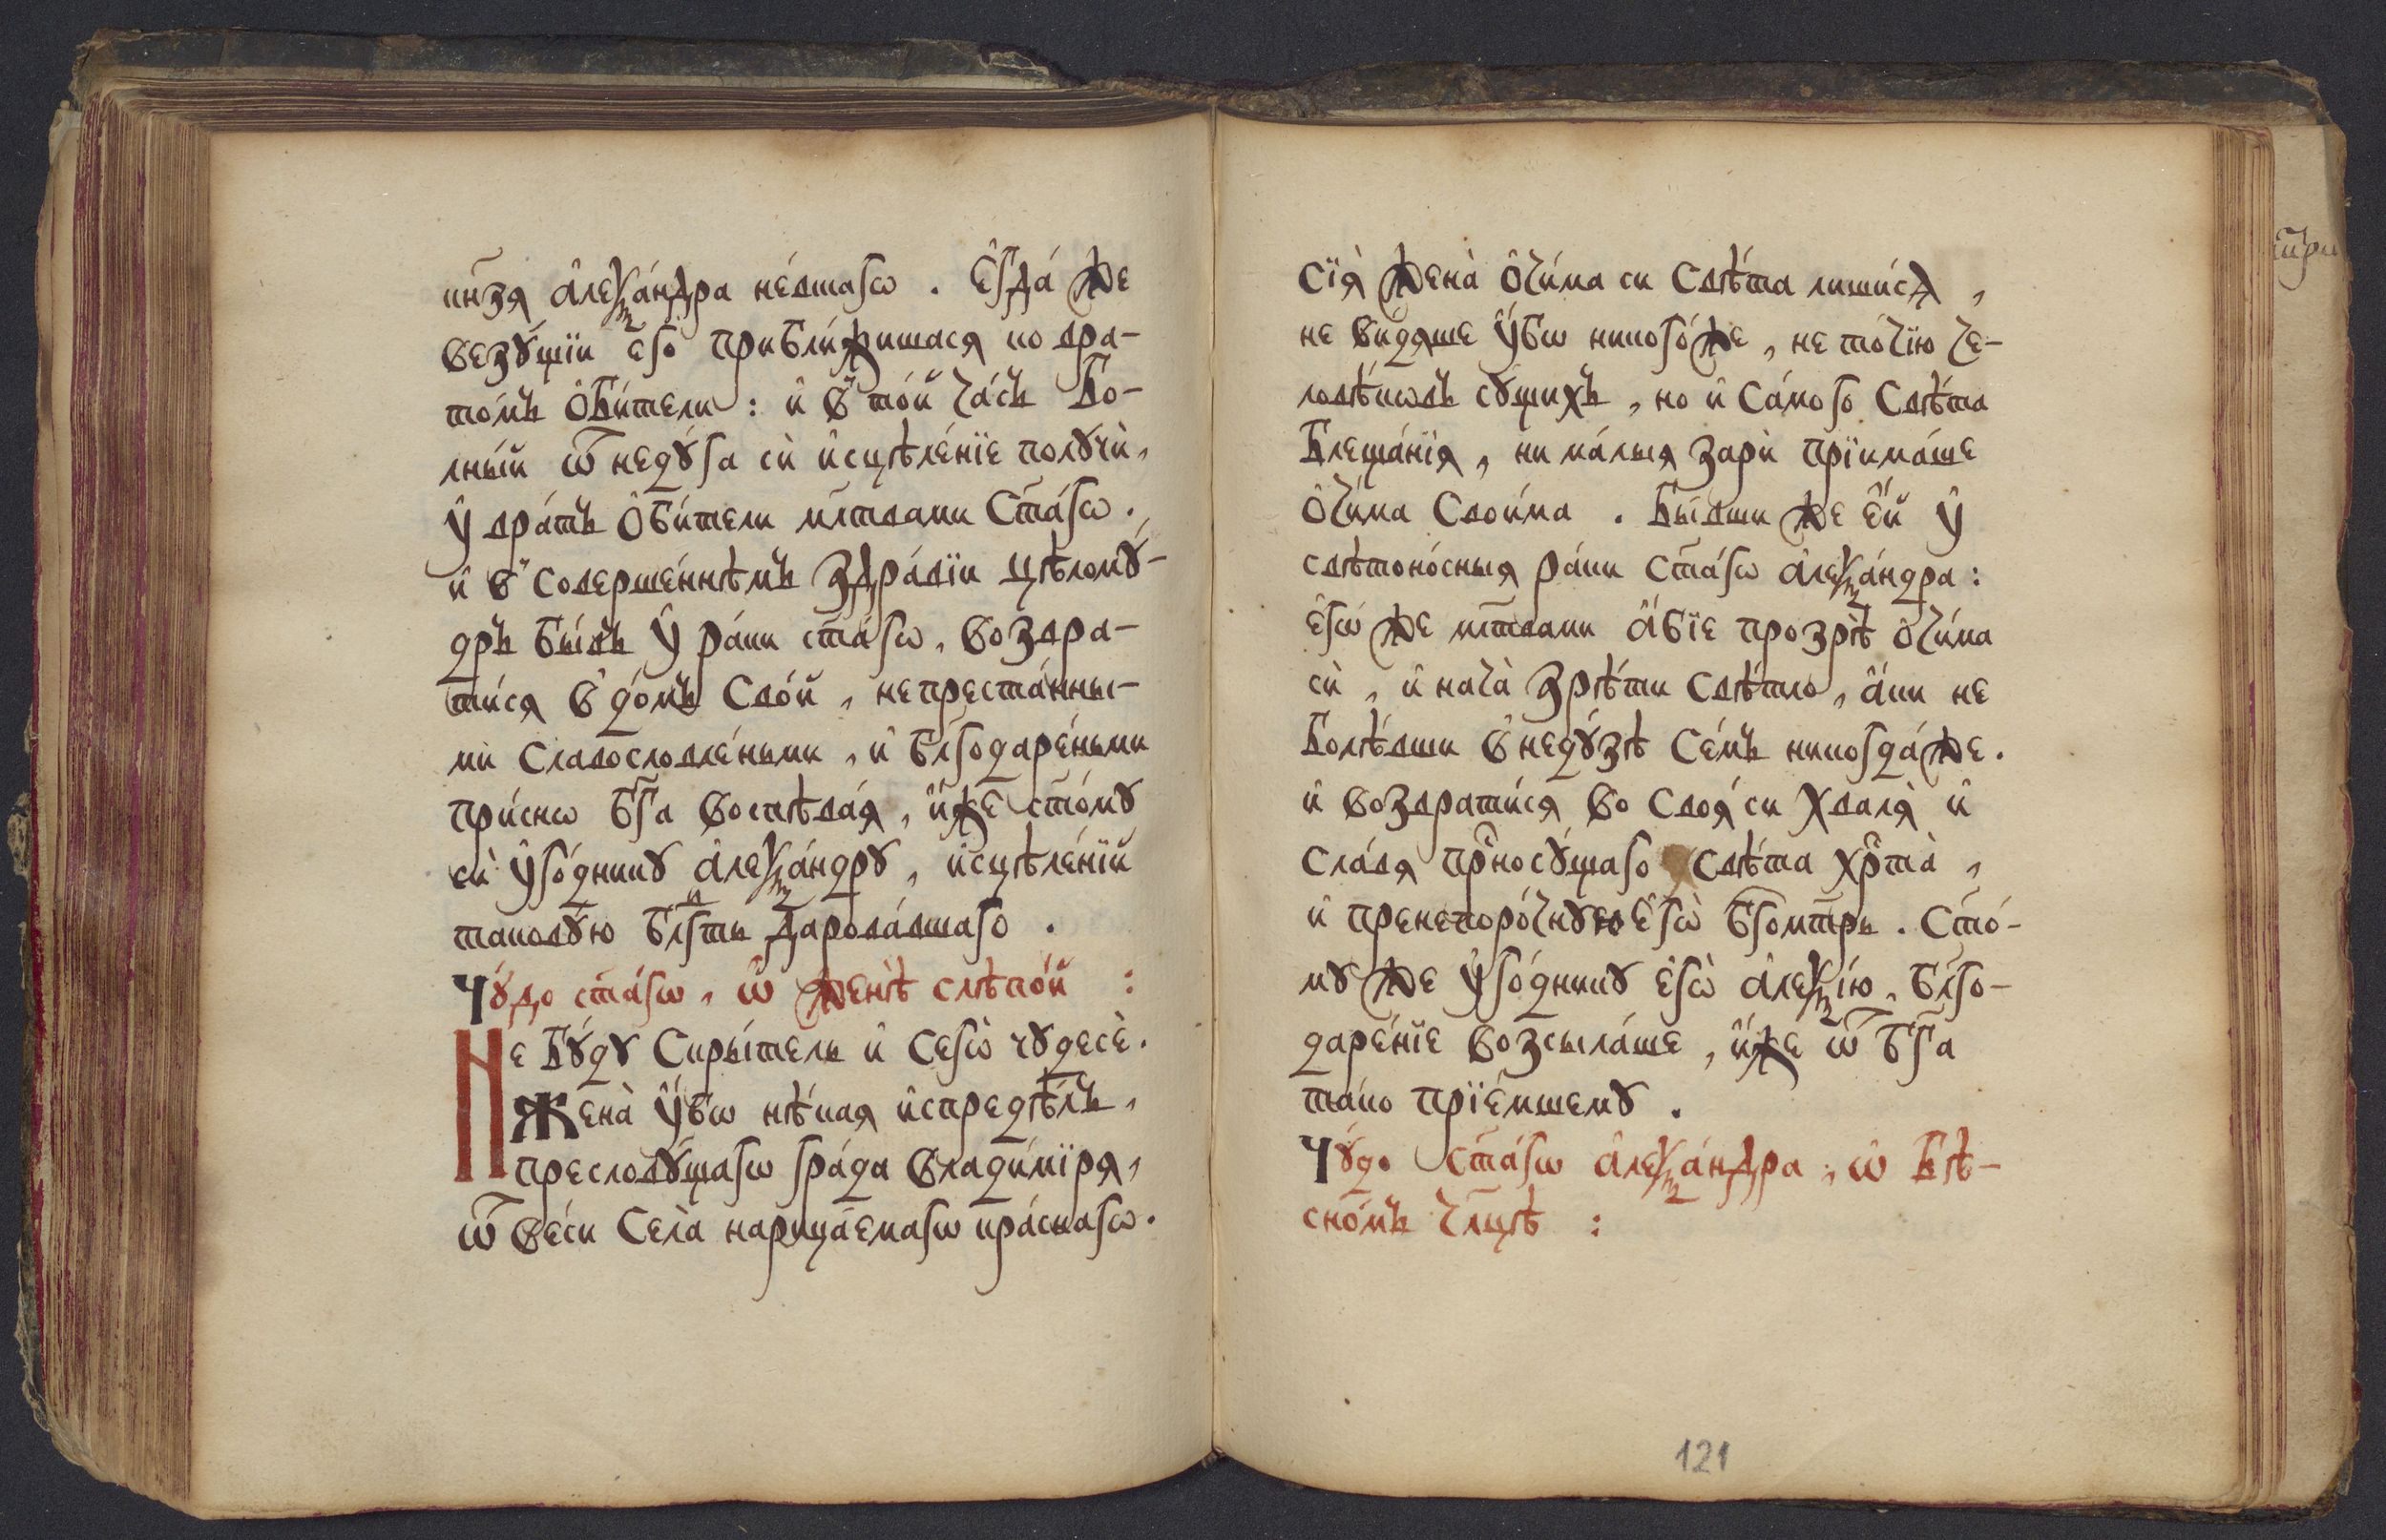 кн҃зя а҆леѯа́ндра не́вшагѡ. Е҆гда́ же
везꙋ́щїи его̀ прибли́жишася ко вра-
то́мъ ѻ҆би́тели: и҆ в̾ то́й ча́съ бо-
лны́й ѿ недꙋ́га си̑ и҆сцѣле́нїе полꙋчѝ,
ᲂу҆ вра́тъ ѻ҆би́тели мл҃твами ст҃а́гѡ.
и҆ в̾ соверше́ннѣмъ здра́вїи цѣломꙋ́-
дръ бы́въ ᲂу҆ ра́ки ст҃а́гѡ, возвра-
ти́ся в̾ до́мъ сво́й, непреста́нны-
ми славословле́ньми, и҆ бл҃годаре́ньми
при́снѡ бг҃а воспѣва́я, и҆́же ст҃о́мꙋ
сѝ ᲂу҆го́дникꙋ а҆леѯа́ндрꙋ, и҆сцѣле́нїй
таковꙋ́ю бл҃гⷣть дарова́вшаго.
Чꙋ́до ст҃а́гѡ, ѡ҆ женѣ̀ слѣпо́й:
Не бꙋ́дꙋ скры́тель и҆ сегѡ̀ чꙋдесѐ.
Жена̀ ᲂу҆́бѡ нѣ́кая и҆спредѣ́лъ,
пресловꙋ́щагѡ гра́да влади́мїря,
ѿ ве́си села̀ нарица́емагѡ кра́снагѡ.
сїѧ̀ жена̀ ѻ҆чи́ма си свѣ́та лиши́сѧ,
не ви́дяше ᲂу҆́бѡ никого́же, не то́чїю че-
ловѣ́кѡвъ сꙋ́щихъ, но и҆ са́маго свѣ́та
блеща́нїя, ни ма́лыя зарѝ прїима́ше
ѻ҆чи́ма свои́ма. Бы́вши же е҆́й ᲂу҆
свѣтоно́сныя ра́ки ст҃а́гѡ а҆леѯа́ндра:
е҆гѡ́ же мл҃твами а҆́бїе прозрѣ̀ ѻ҆чи́ма
сѝ, и҆ нача̀ зрѣ́ти свѣ́тло, а҆́ки не
болѣ́вши в̾ недꙋ́зѣ се́мъ никогда́же.
и҆ возврати́ся во своя́ си хваля̀ и҆
сла́вя прⷭ҇носꙋ́щаго свѣ́та хрⷭ҇та̀,
и҆ пренепоро́чнꙋю е҆гѡ̀ бг҃омт҃рь. Ст҃о́-
мꙋ же ᲂу҆го́дникꙋ е҆гѡ̀ а҆леѯі́ю, бл҃го-
даре́нїе возсыла́ше, и҆́же ѿ бг҃а
та́ко прїе́мшемꙋ.
Чꙋ́до ст҃а́гѡ а҆леѯа́ндра, ѡ҆ бѣ-
сно́мъ чл҃цѣ:
121